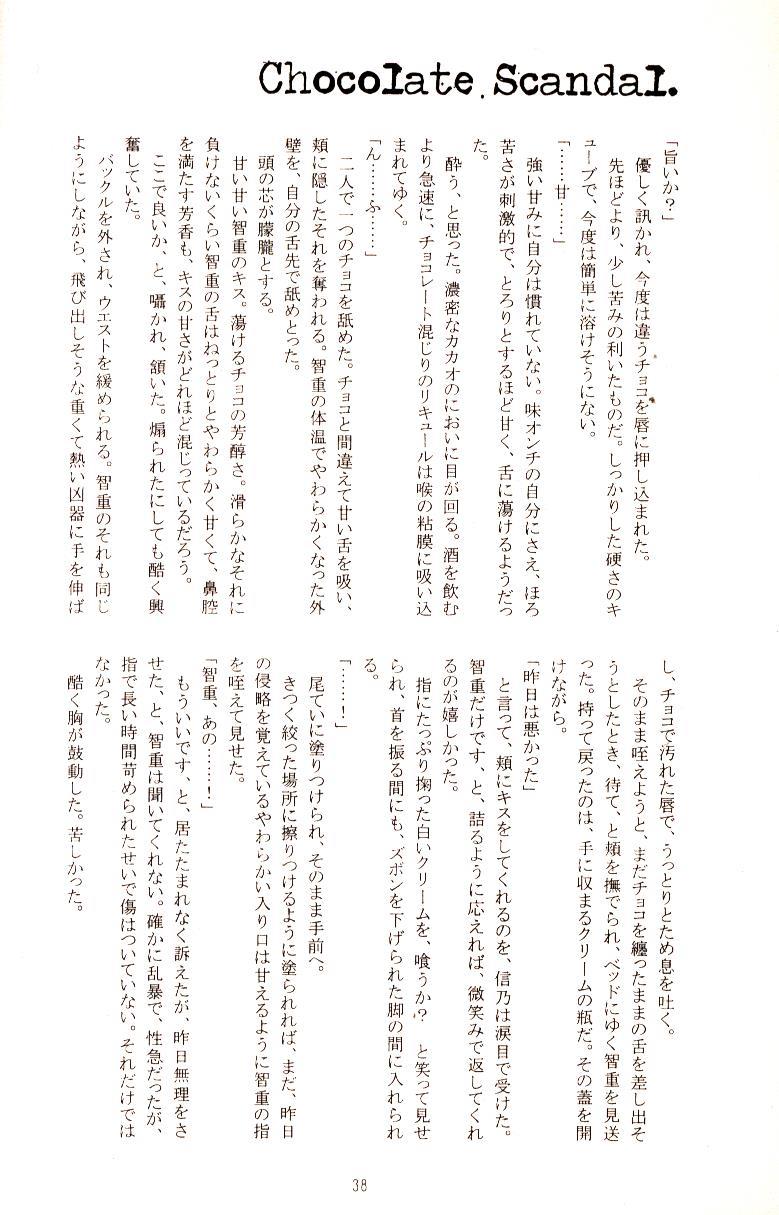 Chocolate Scandal.
「旨いか？」
優しく訊かれ、今度は違うチョコを唇に押し込まれた。
先ほどより、少し苦みの利いたものだ。しっかりした硬さのキ
ューブで、今度は簡単に溶けそうにない。
「……甘……」
強い甘みに自分は慣れていない。味オンチの自分にさえ、ほろ
苦さが刺激的で、とろりとするほど甘く、舌に蕩けるようだっ
た。
酔う、と思った。濃密なカカオのにおいに目が回る。酒を飲む
より急速に、チョコレート混じりのリキュールは喉の粘膜に吸い込
まれてゆく。
「ん……ふ……」
二人で一つのチョコを舐めた。チョコと間違えて甘い舌を吸い、
頬に隠したそれを奪われる。智重の体温でやわらかくなった外
壁を、自分の舌先で舐めとった。
頭の芯が朦朧とする。
甘い甘い智重のキス。蕩けるチョコの芳醇さ。滑らかなそれに
負けないくらい智重の舌はねっとりとやわらかく甘くて、鼻腔
を満たす芳香も、キスの甘さがどれほど混じっているだろう。
ここで良いか、と、囁かれ、頷いた。煽られたにしても酷く興
奮していた。
バックルを外され、ウエストを緩められる。智重のそれも同じ
ようにしながら、飛び出しそうな重くて熱い凶器に手を伸ば
し、チョコで汚れた唇で、うっとりとため息を吐く。
そのまま咥えようと、まだチョコを纏ったままの舌を差し出そ
うとしたとき、待て、と頬を撫でられ、ベッドにゆく智重を見送
った。持って戻ったのは、手に収まるクリームの瓶だ。その蓋を開
けながら。
「昨日は悪かった」
と言って、頬にキスをしてくれるのを、信乃は涙目で受けた。
智重だけです、と、詰るように応えれば、微笑みで返してくれ
るのが嬉しかった。
指にたっぷり掬った白いクリームを、喰うか？　と笑って見せ
られ、首を振る間にも、ズボンを下げられた脚の間に入れられ
る。
「……！」
尾ていに塗りつけられ、そのまま手前へ。
きつく絞った場所に擦りつけるように塗られれば、まだ、昨日
の侵略を覚えているやわらかい入り口は甘えるように智重の指
を咥えて見せた。
「智重、あの……！」
もういいです、と、居たたまれなく訴えたが、昨日無理をさ
せた、と、智重は聞いてくれない。確かに乱暴で、性急だったが、
指で長い時間苛められたせいで傷はついていない。それだけでは
なかった。
酷く胸が鼓動した。苦しかった。
38